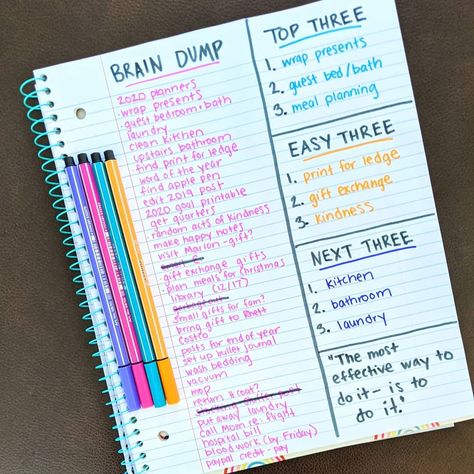 BRAIN DUMP
2020 planners
wrap presents
guest bedroom + bath
laundry
clean kitchen
upstairs bathroom
find print for ledge
word of the year
find apple pen
edit 2019 post
2020 goal printable
get quarters
random acts of kindness
make happy notes
visit Marion - gift?
gift exchange gifts
plan meals for Christmas
library (12/17)
small gifts for fam?
bring gift to Rhett
Costco
posts for end of year
set up bullet journal
wash bedding
vacuum
mop
return it coat?
put away laundry
call Mom re: flight
hospital bill
blood work (by Friday)
paypal credit - pay
TOP THREE
1. wrap presents
2. guest bed/bath
3. meal planning
EASY THREE
1. print for ledge
2. gift exchange
3. kindness
NEXT THREE
1. kitchen
2. bathroom
3. laundry
"The most
effective way to
do it - is to
do it."